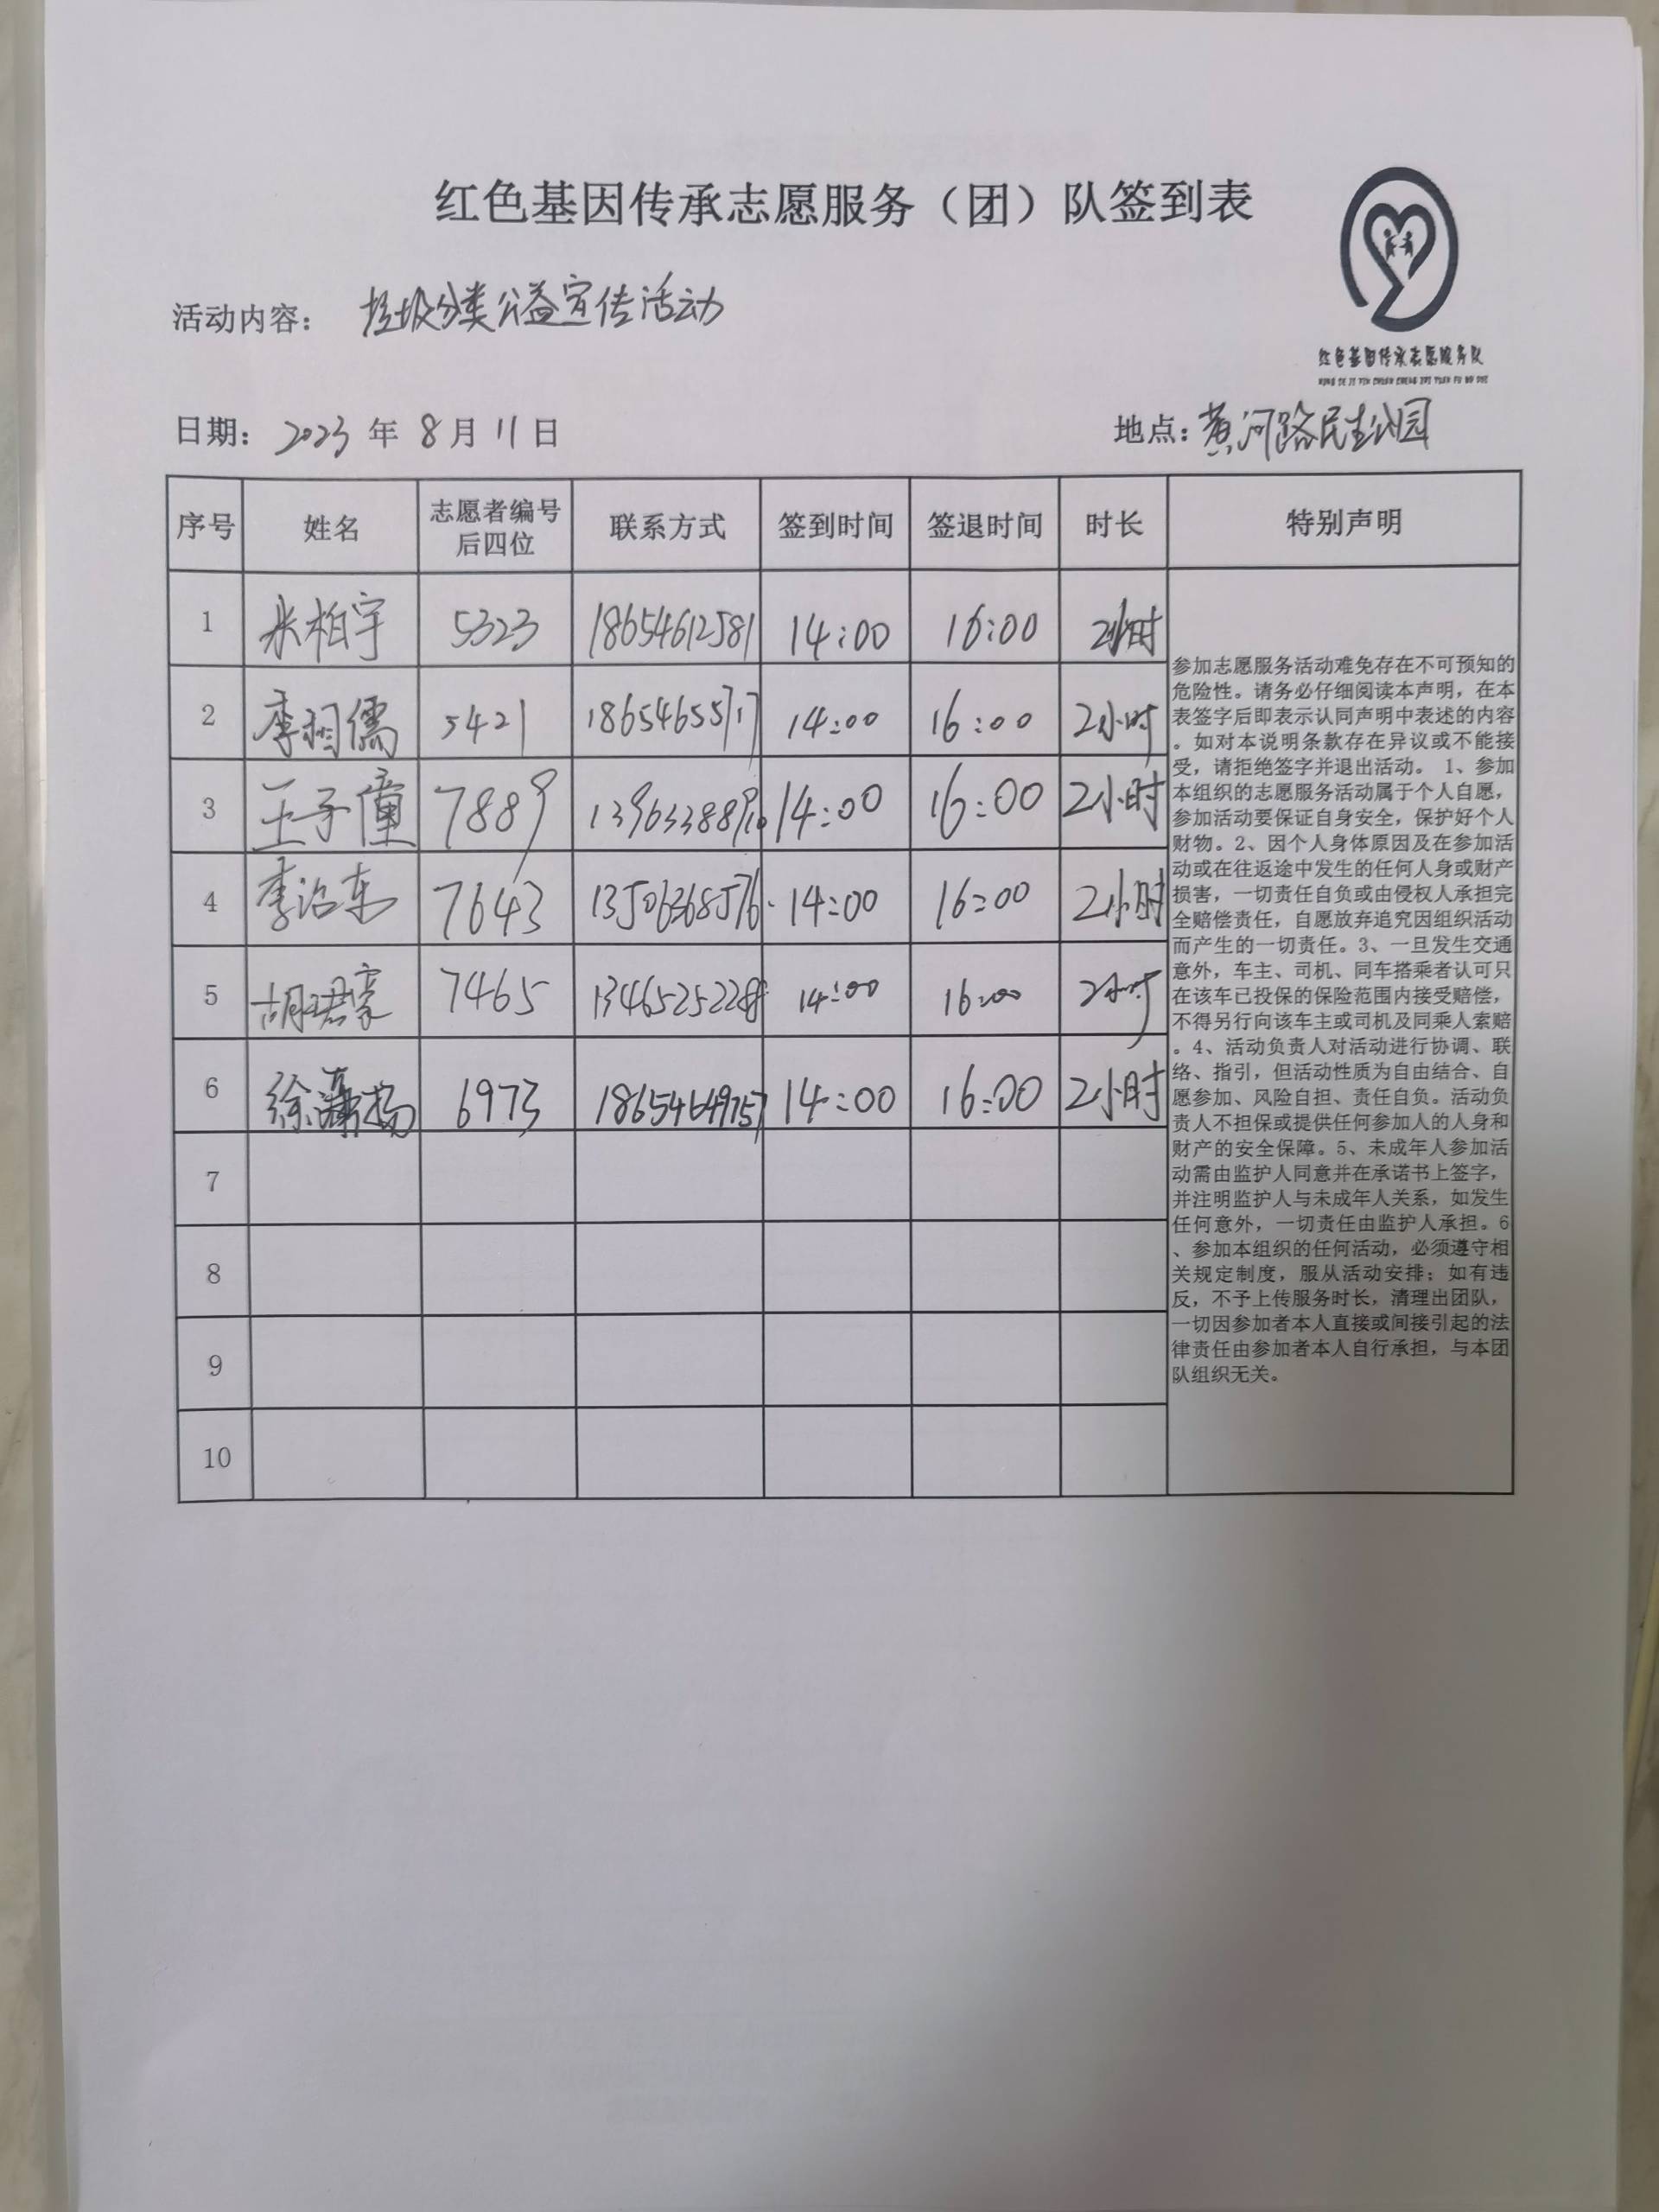 红色基因传承志愿服务（团）队签到表
红色基因传承志愿服务队
HONG SE JI YIN CHUAN CHENG ZHI YUAN FU WU DUI
活动内容： 垃圾分类公益宣传活动
日期：2023年8月11日 地点：黄河路民生公园
序号 姓名 志愿者编号后四位 联系方式 签到时间 签退时间 时长 特别声明
1 米柏宇 5323 18654612581 14:00 16:00 2小时
2 李翊儒 5421 14:00 16:00 2小时
3 王子僮 7889 14:00 16:00 2小时
4 李治东 7643 14:00 16:00 2小时
5 胡珺豪 7465 14:00 16:00 2小时
6 徐 扬 6973 18654649757 14:00 16:00 2小时
7
8
9
10
参加志愿服务活动难免存在不可预知的
危险性。请务必仔细阅读本声明，在本
表签字后即表示认同声明中表述的内容
。如对本说明条款存在异议或不能接
受，请拒绝签字并退出活动。 1、参加
本组织的志愿服务活动属于个人自愿，
参加活动要保证自身安全，保护好个人
财物。2、因个人身体原因及在参加活
动或在往返途中发生的任何人身或财产
损害，一切责任自负或由侵权人承担完
全赔偿责任，自愿放弃追究因组织活动
而产生的一切责任。3、一旦发生交通
意外，车主、司机、同车搭乘者认可只
在该车已投保的保险范围内接受赔偿，
不得另行向该车主或司机及同乘人索赔
。4、活动负责人对活动进行协调、联
络、指引，但活动性质为自由结合、自
愿参加、风险自担、责任自负。活动负
责人不担保或提供任何参加人的人身和
财产的安全保障。5、未成年人参加活
动需由监护人同意并在承诺书上签字，
并注明监护人与未成年人关系，如发生
任何意外，一切责任由监护人承担。6
、参加本组织的任何活动，必须遵守相
关规定制度，服从活动安排；如有违
反，不予上传服务时长，清理出团队，
一切因参加者本人直接或间接引起的法
律责任由参加者本人自行承担，与本团
队组织无关。